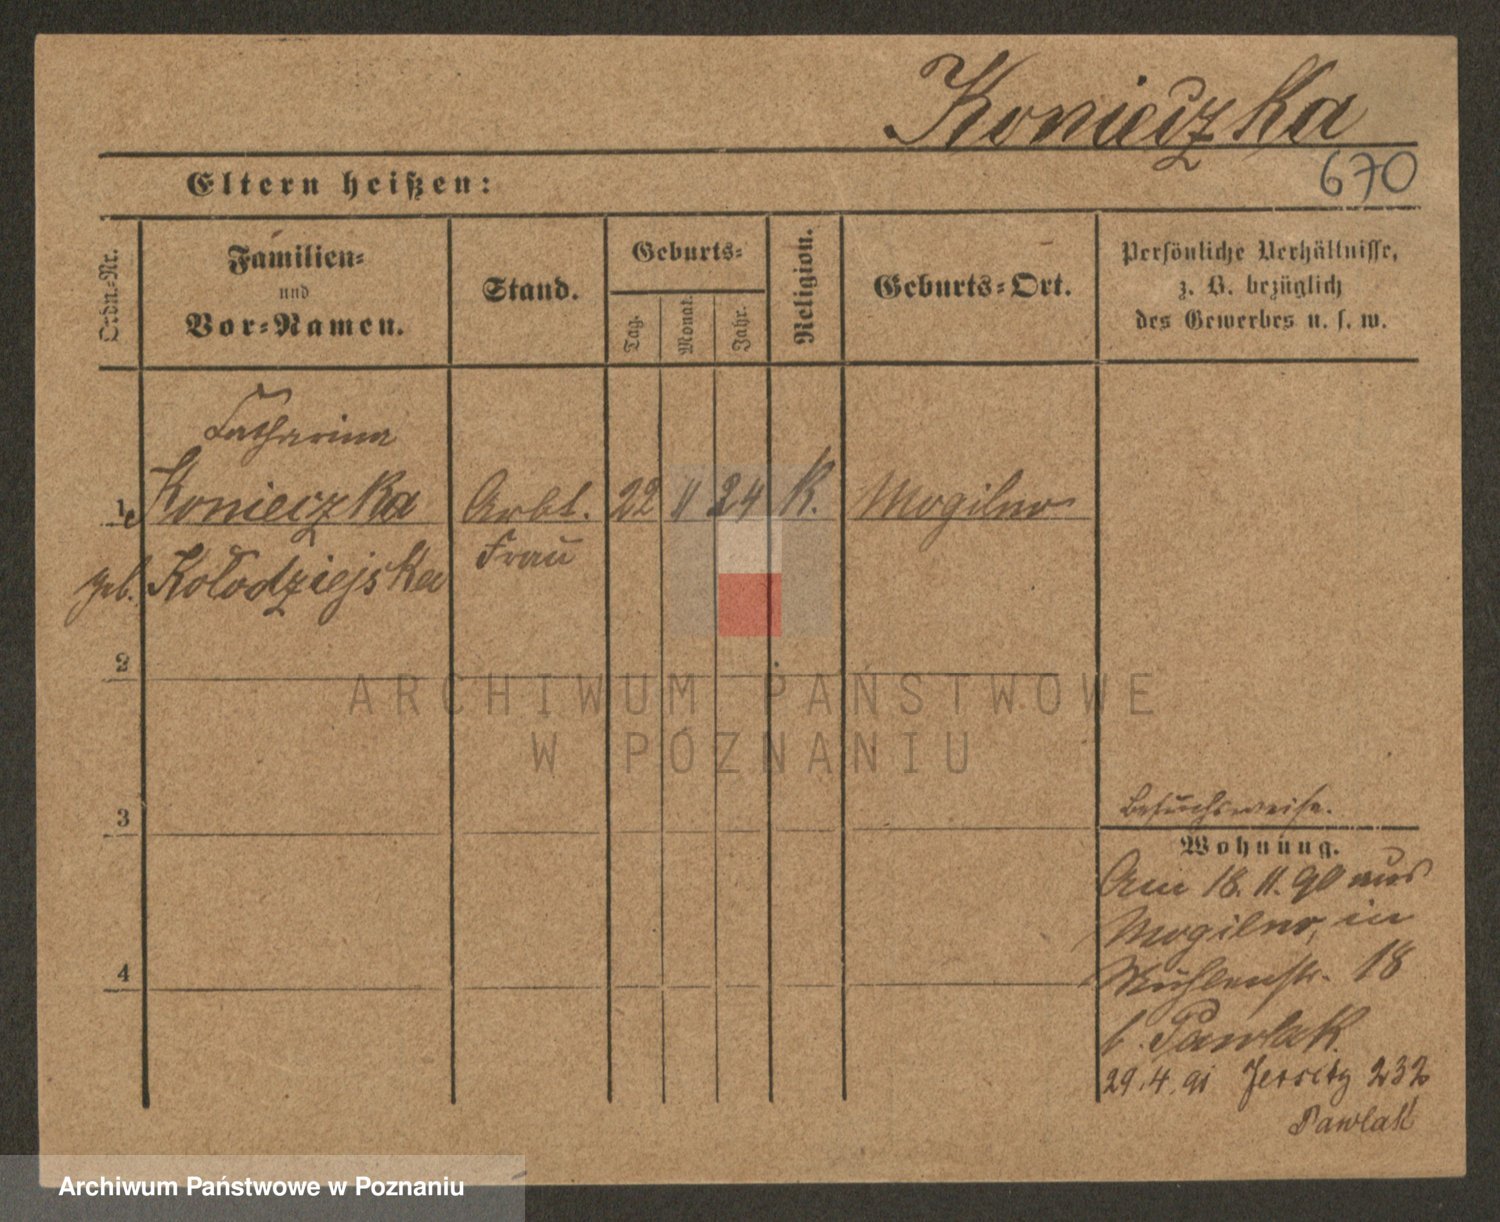 Konieczka
670
Eltern heißen:
Ordn.-Nr.
Familien-
und
Vor-Namen.
Stand.
Geburts-
Tag.
Monat.
Jahr.
Religion.
Geburts-Ort.
Persönliche Verhältnisse,
z. B. bezüglich
des Gewerbes u. s. w.
Catharina
1 Konieczka Arbt. 22 11 24 K. Mogilno
Frau
geb. Kołodziejska
2
ARCHIWUM PAŃSTWOWE
W POZNANIU
3
Besuchsweise.
Wohnung.
Am 18. 11. 90 aus
Mogilno, in
4
Mühlenstr. 18
b. Pawlak.
29.4.91 Jersitz 232
Pawlak
Archiwum Państwowe w Poznaniu